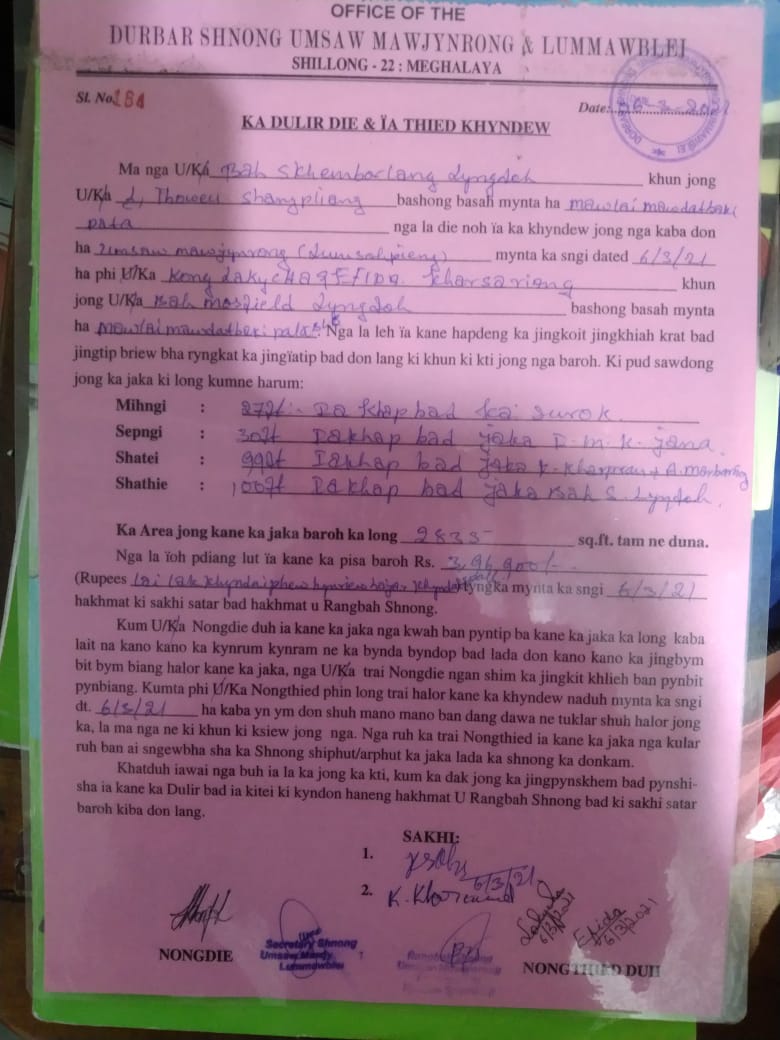 OFFICE OF THE
DURBAR SHNONG UMSAW MAWJYNRONG & LUMMAWBLEI
SHILLONG - 22 : MEGHALAYA
Sl. No. 184
Date: 06-3-2021
KA DULIR DIE & ÏA THIED KHYNDEW
Ma nga U/Ka Bah Skhemborlang Lyngdoh khun jong
U/Ka L, Thowell Shangpliang bashong basah mynta ha mawlai mawdatbaki
pata nga la die noh ïa ka khyndew jong nga kaba don
ha Umsaw mawjynrong mynta ka sngi dated 6/3/21
ha phi U/Ka Kong Kharsariang khun
jong U/Ka Bah Lyngdoh bashong basah mynta
ha mawlai mawdatbaki pata Nga la leh ïa kane hapdeng ka jingkoit jingkhiah krat bad
jingtip briew bha ryngkat ka jingïatip bad don lang ki khun ki kti jong nga baroh. Ki pud sawdong
jong ka jaka ki long kumne harum:
Mihngi : 27ft:- Ïa khap bad ka surok.
Sepngi : 30ft Ïakhap bad jaka D.M.K. jana.
Shatei : 99ft Ïakhap bad jaka
Shathie : 100ft Ïakhap bad jaka Bah S. Lyngdoh.
Ka Area jong kane ka jaka baroh ka long 2835 sq.ft. tam ne duna.
Nga la ïoh pdiang lut ïa kane ka pisa baroh Rs. 3,96,900/-
(Rupees Lai lak khyndaiphew hynriew hajar khyndai tyngka mynta ka sngi 6/3/21
hakhmat ki sakhi satar bad hakhmat u Rangbah Shnong.
Kum U/Ka Nongdie duh ia kane ka jaka nga kwah ban pyntip ba kane ka jaka ka long kaba
lait na kano kano ka kynrum kynram ne ka bynda byndop bad lada don kano kano ka jingbym
bit bym biang halor kane ka jaka, nga U/Ka trai Nongdie ngan shim ka jingkit khlieh ban pynbit
pynbiang. Kumta phi U/Ka Nongthied phin long trai halor kane ka khyndew naduh mynta ka sngi
dt. 6/3/21 ha kaba yn ym don shuh mano mano ban dang dawa ne tuklar shuh halor jong
ka, la ma nga ne ki khun ki ksiew jong nga. Nga ruh ka trai Nongthied ia kane ka jaka nga kular
ruh ban ai sngewbha sha ka Shnong shiphut/arphut ka jaka lada ka shnong ka donkam.
Khatduh iawai nga buh ia la ka jong ka kti, kum ka dak jong ka jingpynskhem bad pynshi-
sha ia kane ka Dulir bad ia kitei ki kyndon haneng hakhmat U Rangbah Shnong bad ki sakhi satar
baroh kiba don lang.
SAKHI:
1. 6/3/21
2. K.
6/3/2021
Efida
6/3/2021
NONGDIE
Secretary Shnong
Umsaw Mawjy
Lummawblei
NONGTHIED DUH